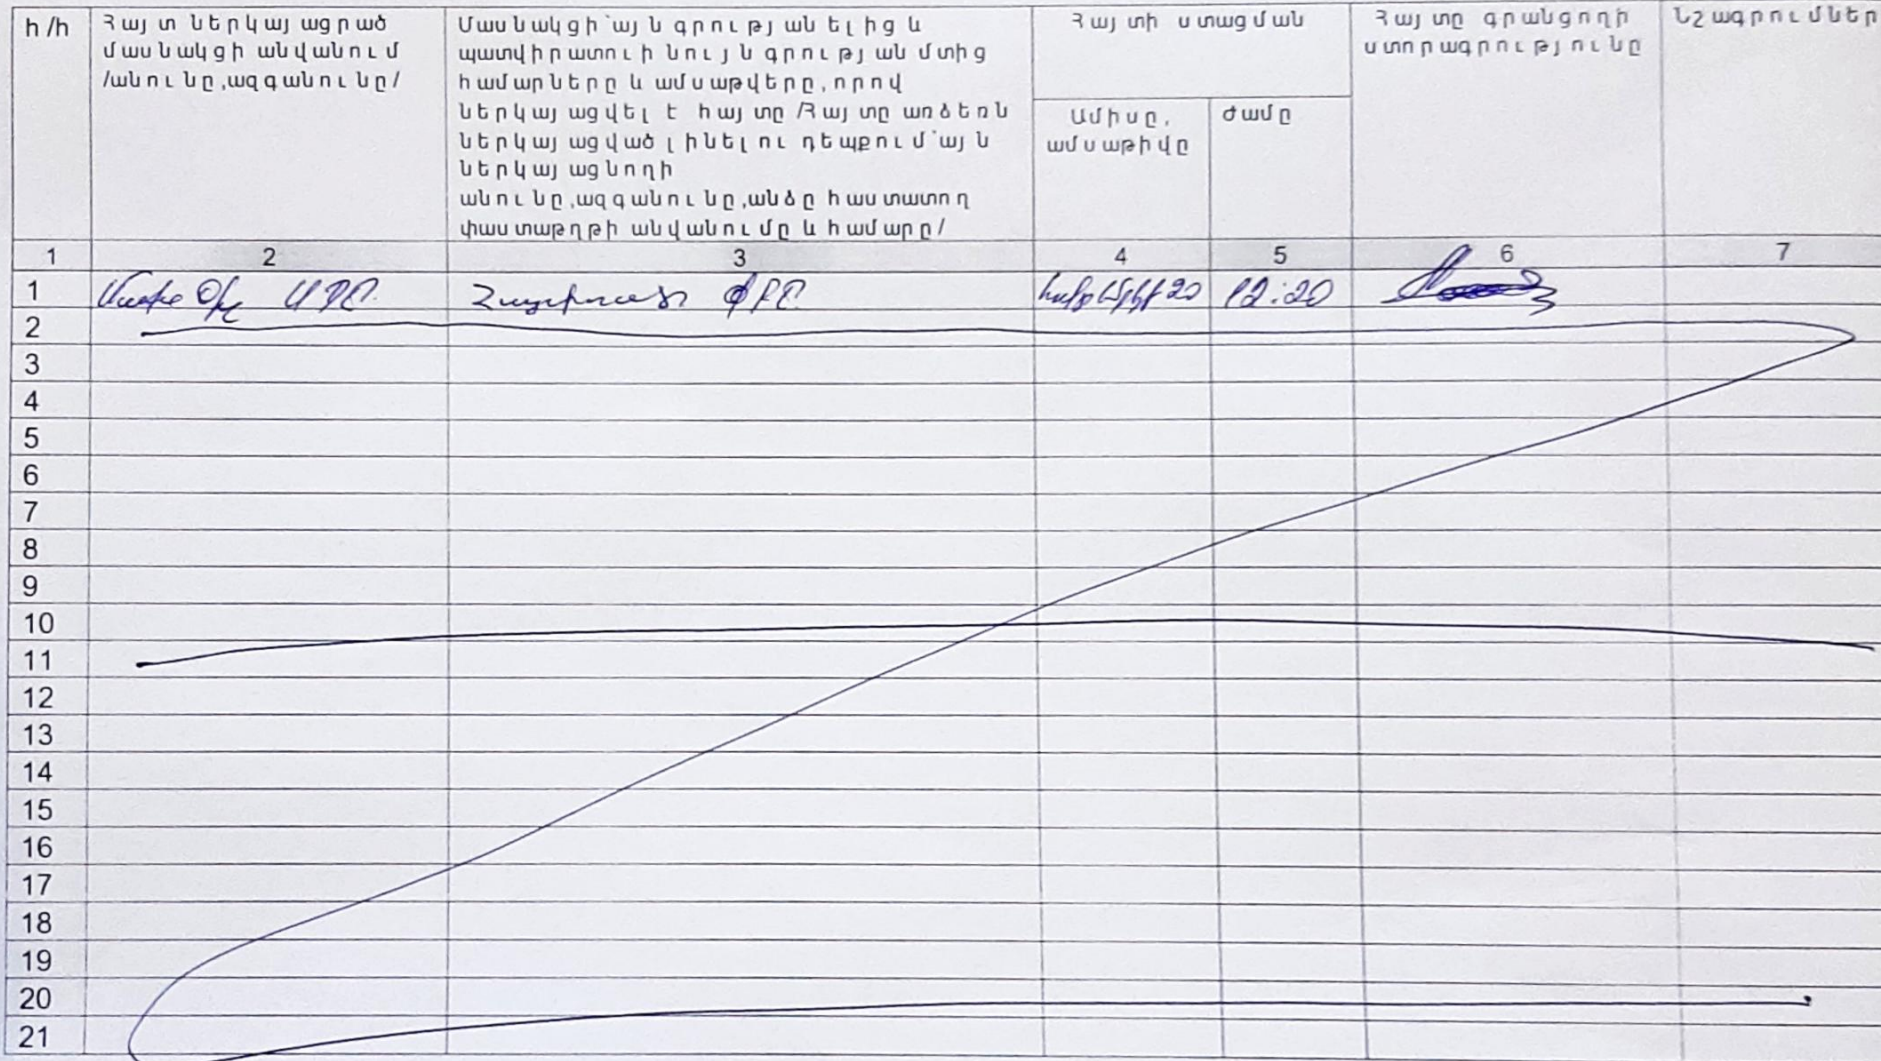 հ/հ
Հայտ ներկայացրած
մասնակցի անվանում
/անունը,ազգանունը/
Մասնակցի՝այն գրությանելից և
պատվիրատուի նույն գրության մտից
համարները և ամսաթվերը,որով
ներկայացվել է հայտը /Հայտը առձեռն
ներկայացված լինելու դեպքում՝այն
ներկայացնողի
անունը,ազգանունը,անձը հաստատող
փաստաթղթի անվանումը և համարը/
Հայտի ստացման
Ամիսը,
ամսաթիվը
Ժամը
Հայտը գրանցողի
ստորագրությունը
Նշագրումներ
1 2 3 4 5 6 7
1 ՍՊԸ ՓԲԸ 20 12:20
2
3
4
5
6
7
8
9
10
11
12
13
14
15
16
17
18
19
20
21